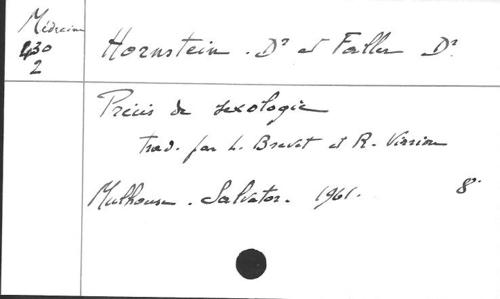 Médecine
430
2
Hornstein. Dr et Faller Dr.
Précis de sexologie
trad. par L. Brevet et R. Virrion
Mulhouse. Salvator. 1961. 8°.